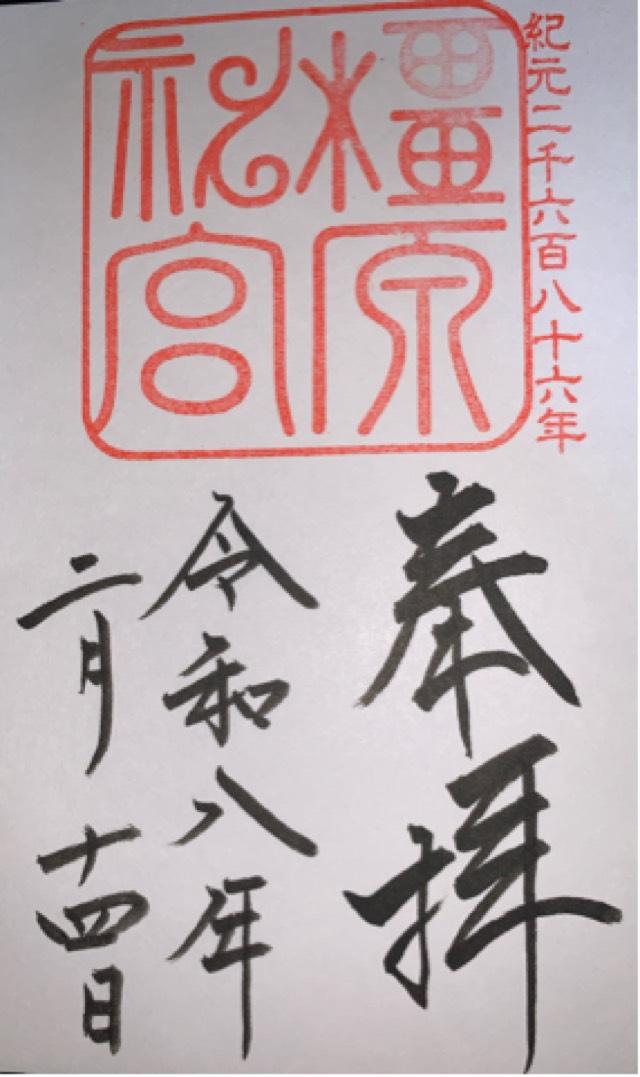 紀元二千六百八十六年
橿原
神宮
奉拝
令和八年
二月十四日